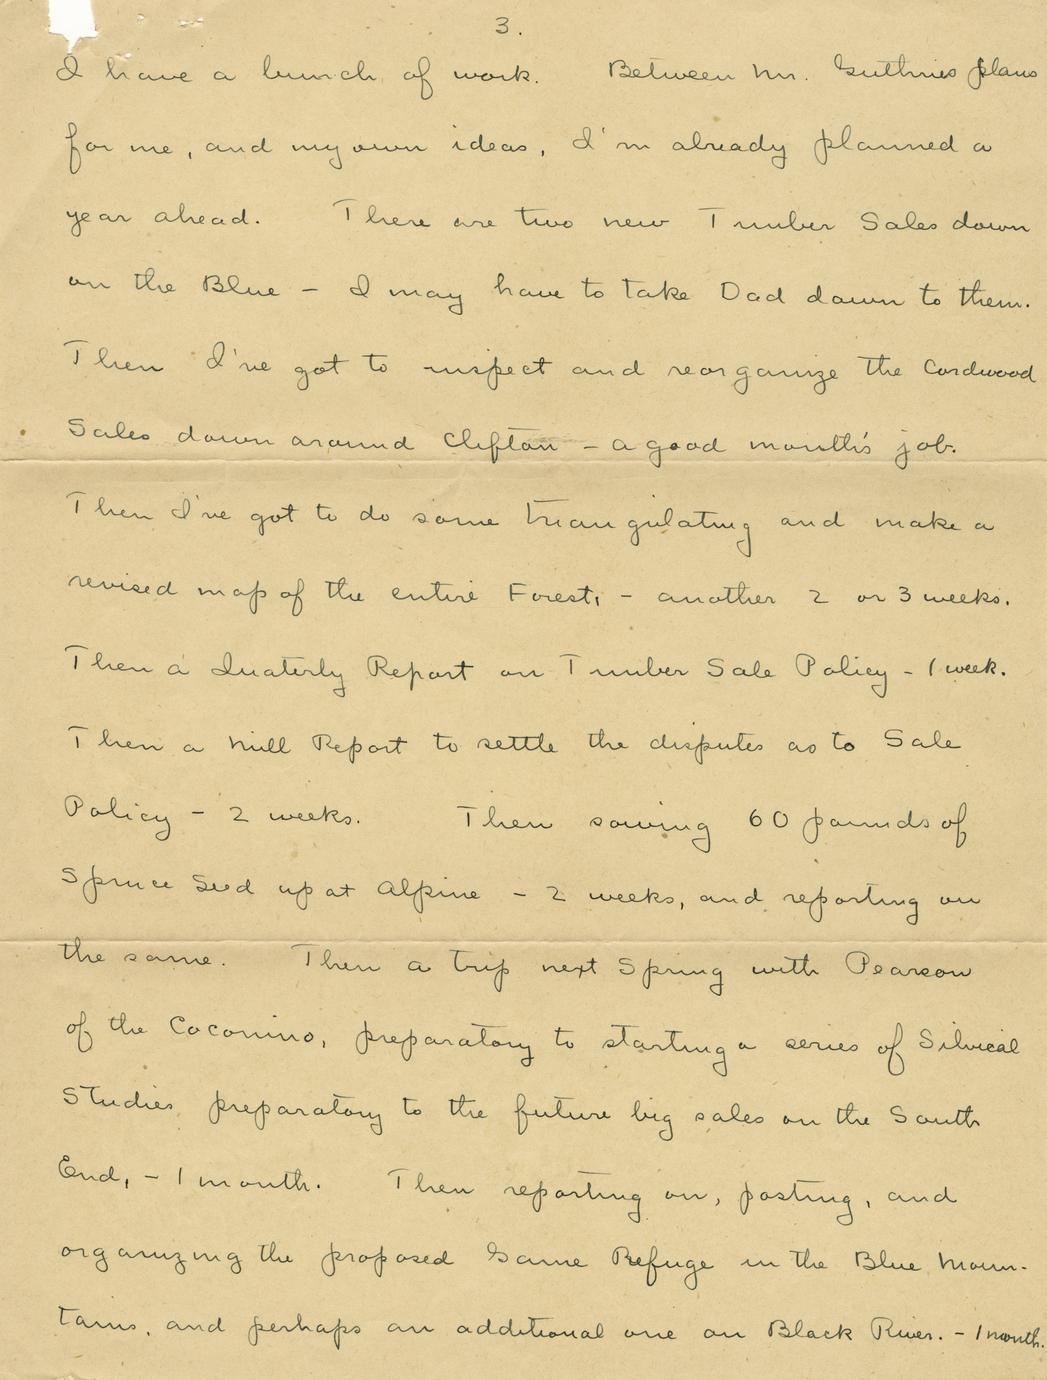 3.
I have a bunch of work. Between Mr. Guthries plans
for me, and my own ideas, I'm already planned a
year ahead. There are two new Timber Sales down
on the Blue – I may have to take Dad down to them.
Then I've got to inspect and reorganize the Cordwood
Sales down around Clifton – a good month's job.
Then I've got to do some triangulating and make a
revised map of the entire Forest, – another 2 or 3 weeks.
Then a Quaterly Report on Timber Sale Policy – 1 week.
Then a Mill Report to settle the disputes as to Sale
Policy – 2 weeks. Then sowing 60 pounds of
Spruce Seed up at Alpine – 2 weeks, and reporting on
the same. Then a trip next Spring with Pearson
of the Coconino, preparatory to starting a series of Silvical
Studies preparatory to the future big sales on the South
End, – 1 month. Then reporting on, posting, and
organizing the proposed Game Refuge in the Blue Moun-
tains, and perhaps an additional one on Black River. – 1 month.